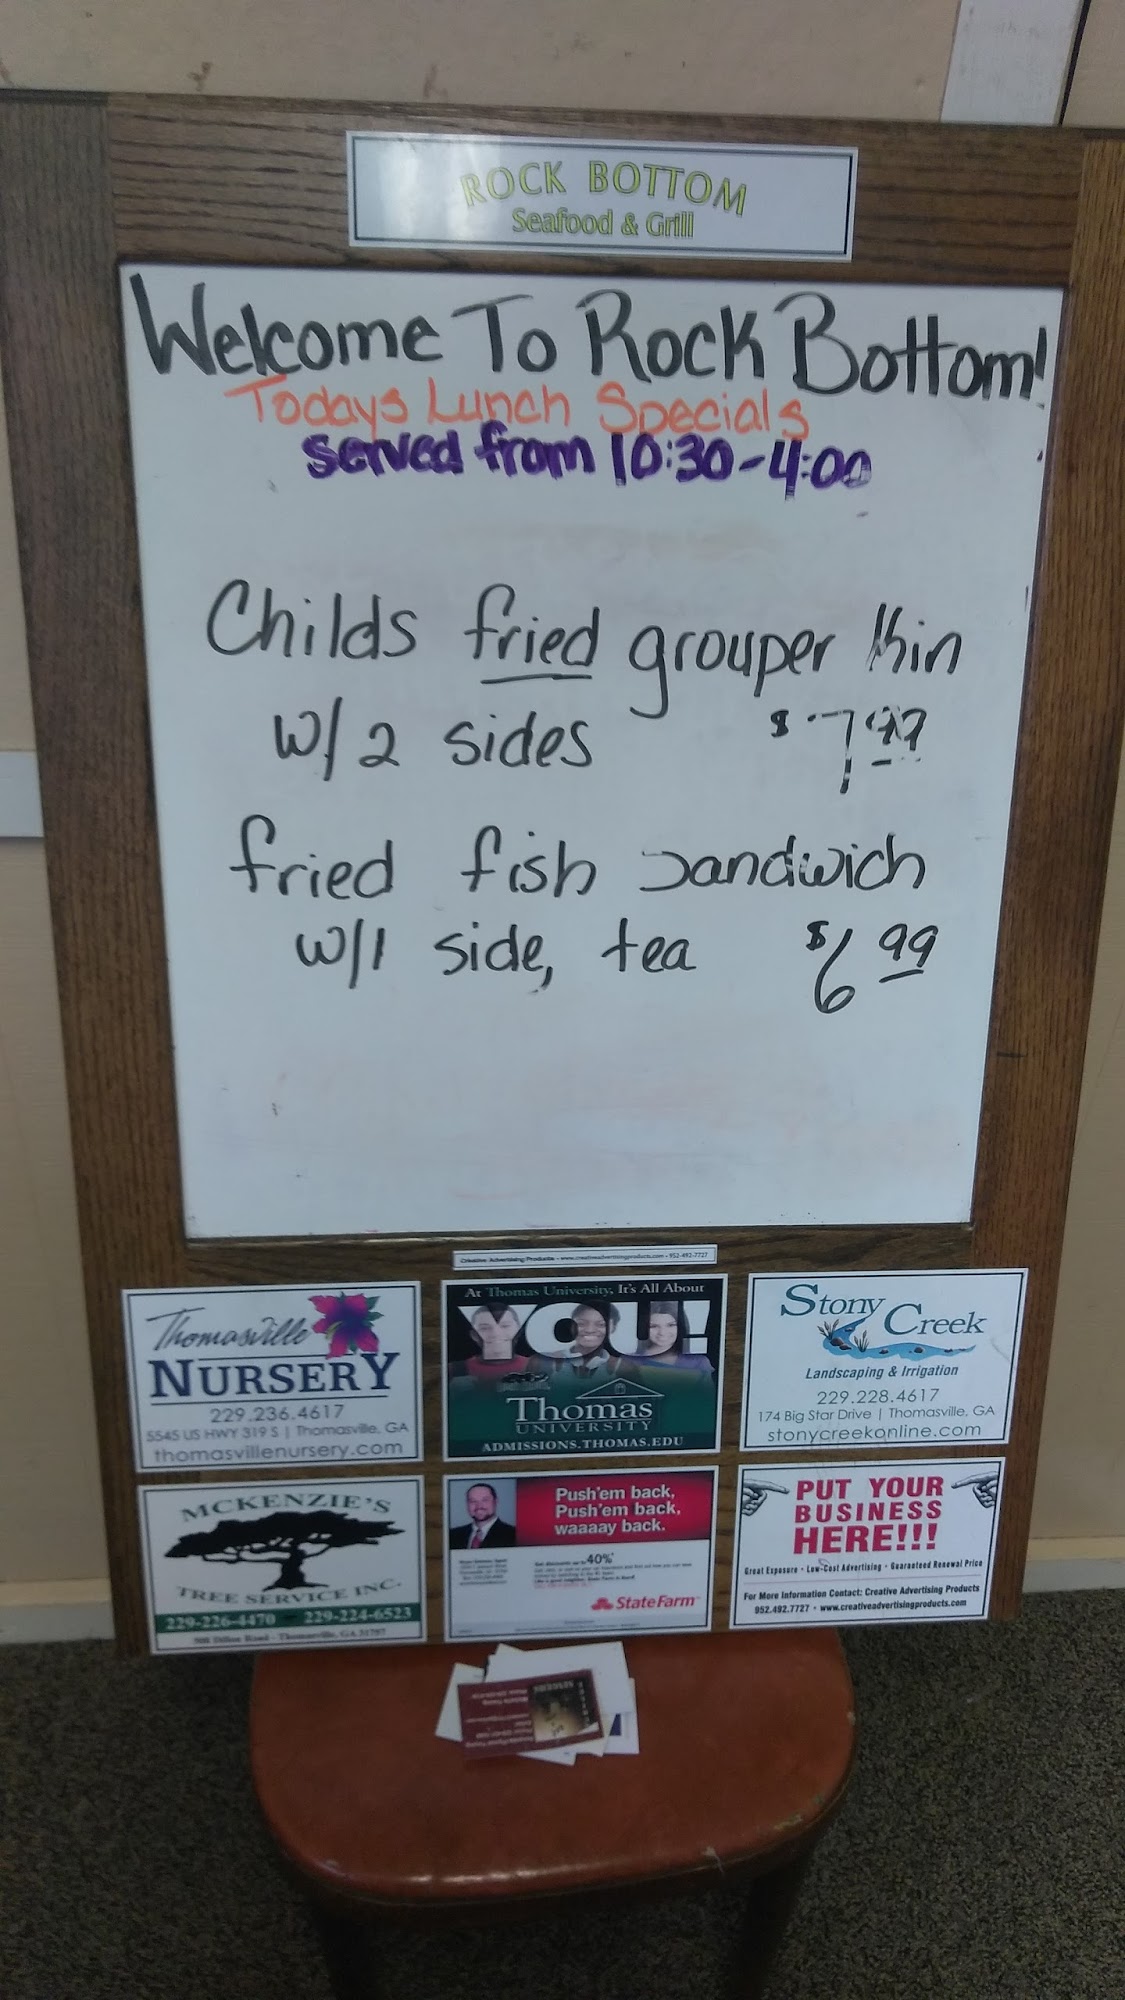 ROCK BOTTOM
Seafood & Grill
Welcome To Rock Bottom!
Todays Lunch Specials
served from 10:30-4:00
Childs fried grouper
w/2 sides $7.99
fried fish sandwich
w/1 side, tea $6.99
Creative Advertising Products • www.creativeadvertisingproducts.com • 952-492-7727
Thomasville
NURSERY
229.236.4617
5545 US HWY 319 S | Thomasville, GA
thomasvillenursery.com
At Thomas University, It's All About
YOU!
Thomas
UNIVERSITY
ADMISSIONS.THOMAS.EDU
Stony Creek
Landscaping & Irrigation
229.228.4617
174 Big Star Drive | Thomasville, GA
stonycreekonline.com
MCKENZIE'S
TREE SERVICE INC.
229-226-4470 - 229-224-6523
Thomasville, GA 31757
Push'em back,
Push'em back,
waaaay back.
Get discounts up to 40%*
State Farm
PUT YOUR
BUSINESS
HERE!!!
Great Exposure • Low-Cost Advertising • Guaranteed Renewal Price
For More Information Contact: Creative Advertising Products
952.492.7727 • www.creativeadvertisingproducts.com